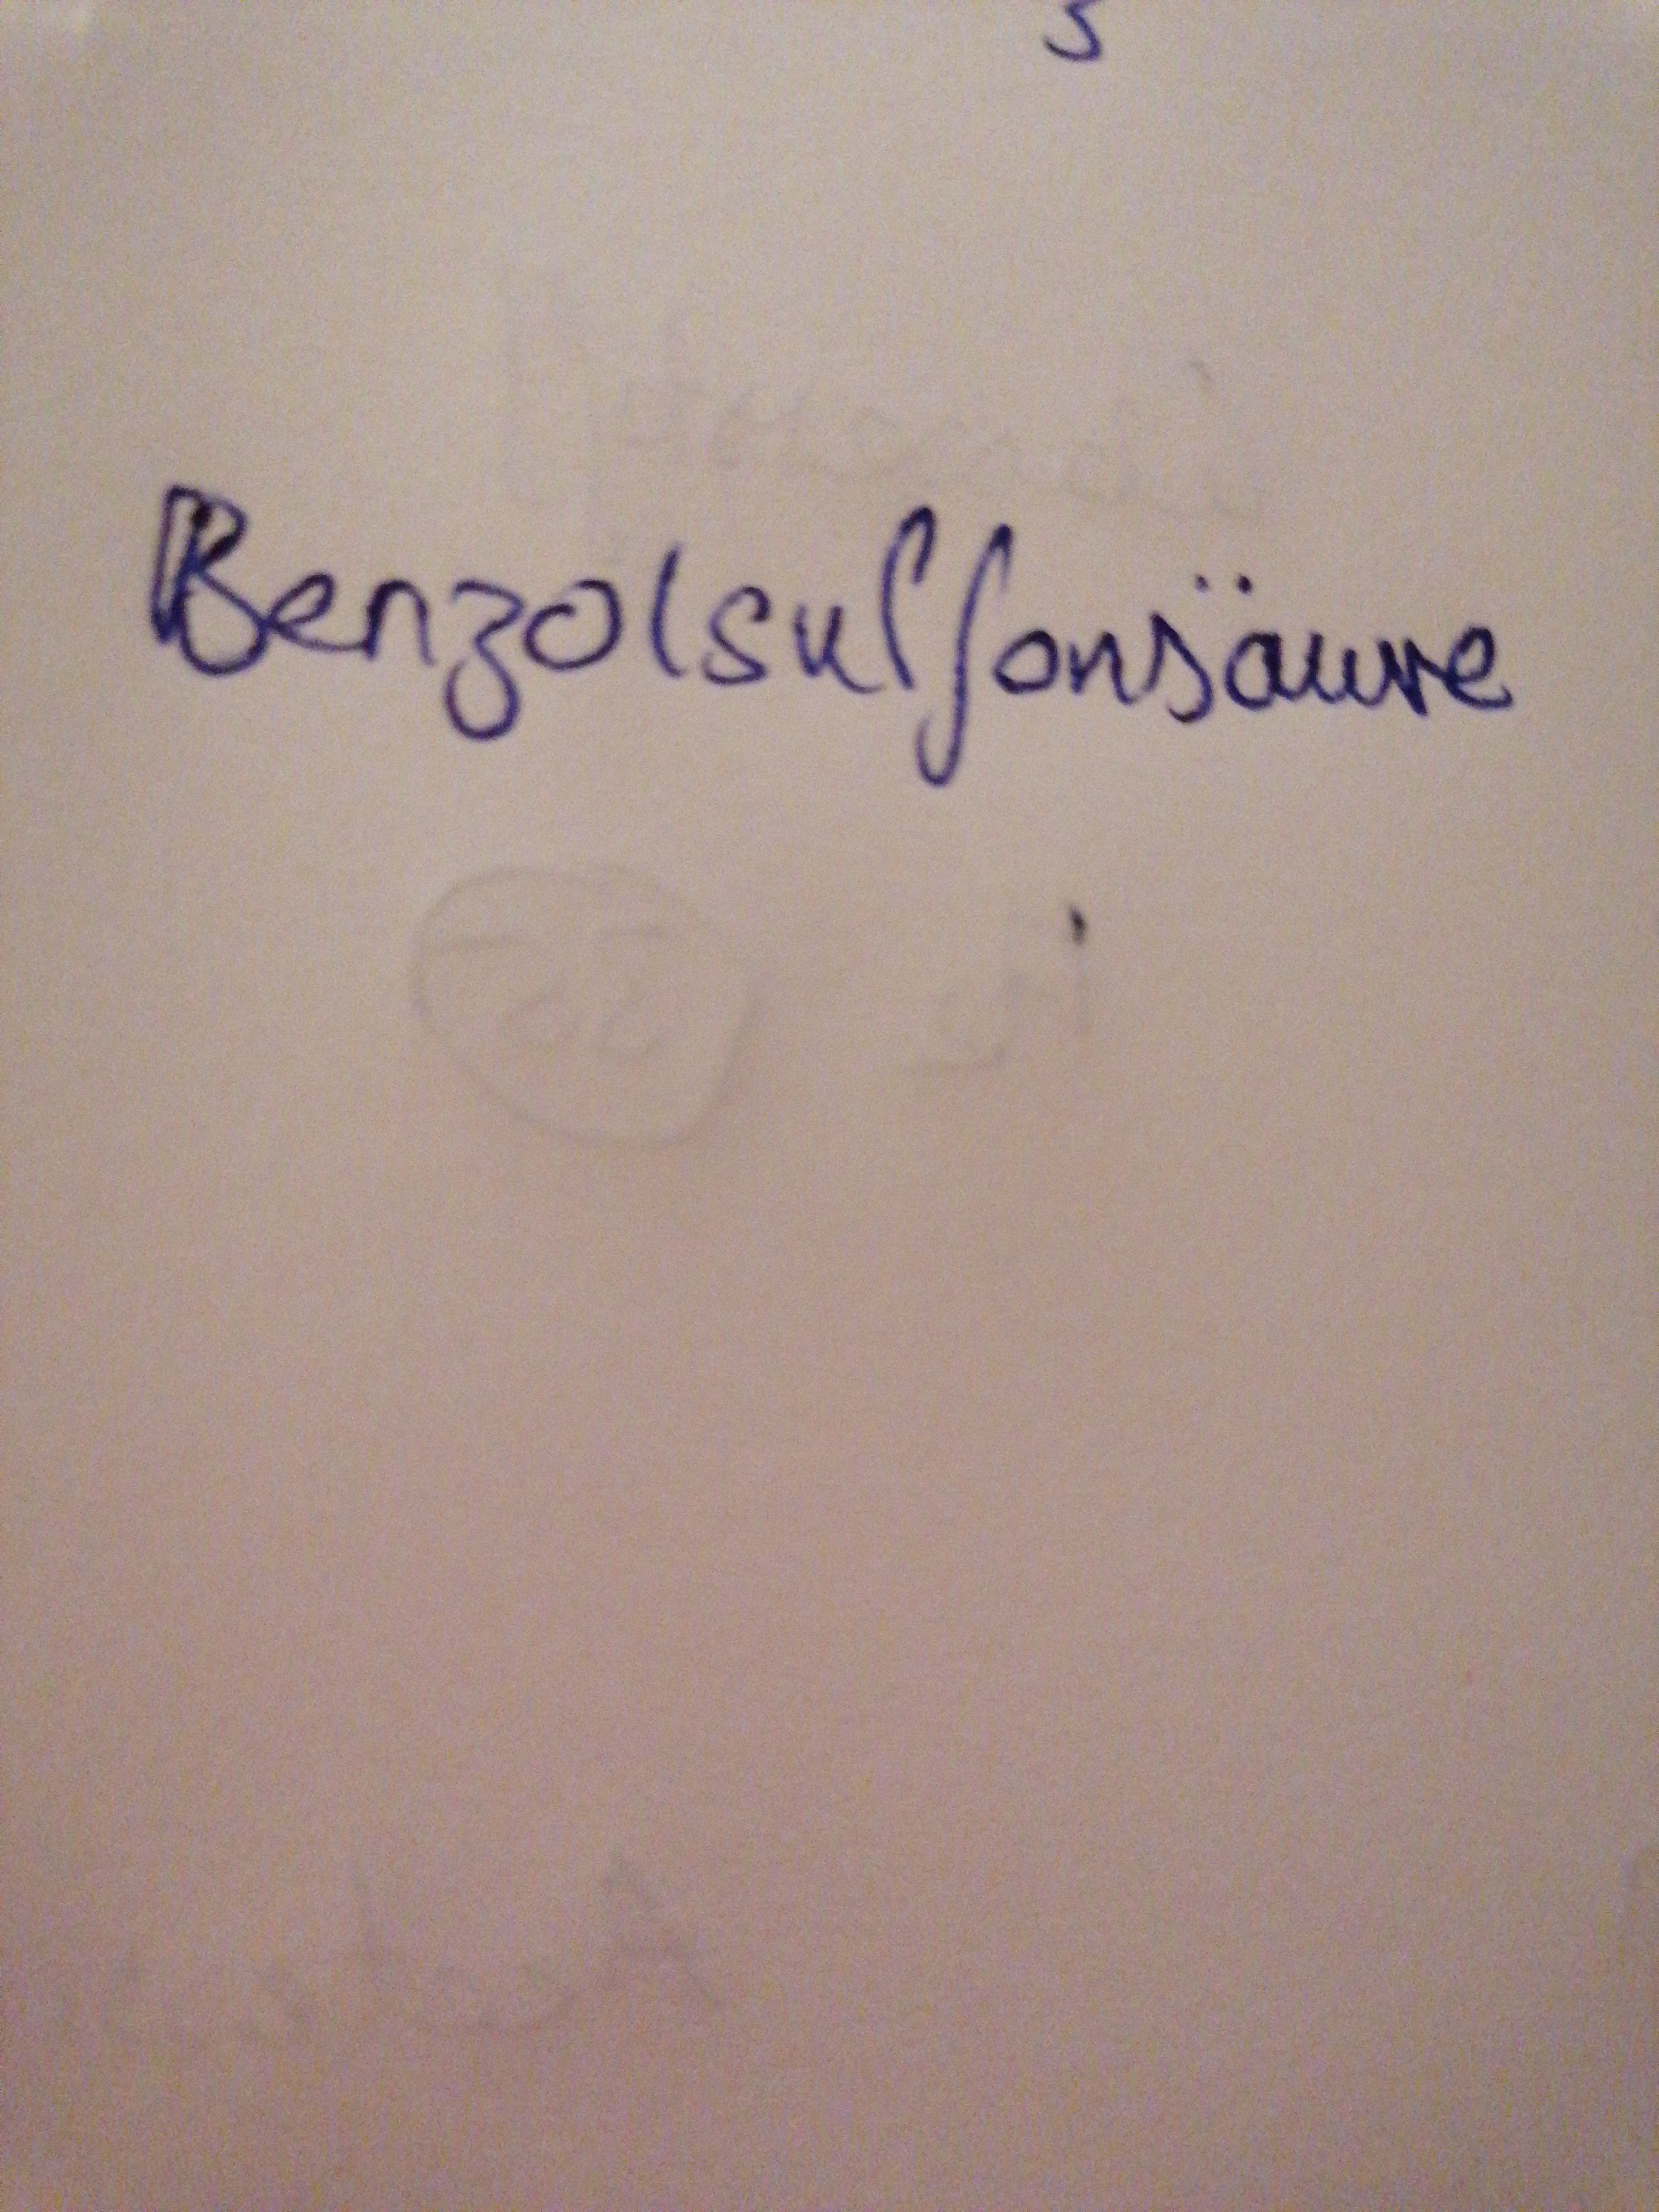 Benzolsulfonsäure